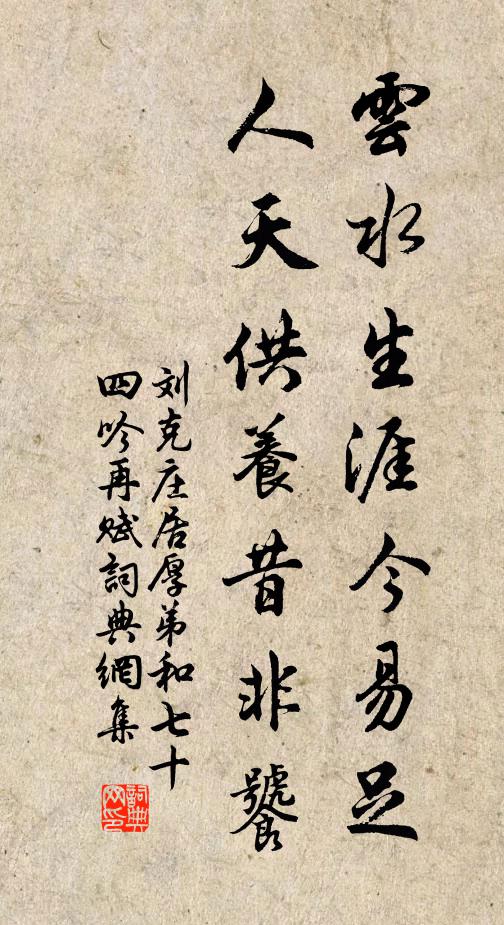 雲水生涯今易足
人天供養昔非饕
刘克庄居厚弟和七十
四吟再赋詞典網集
詞典网印